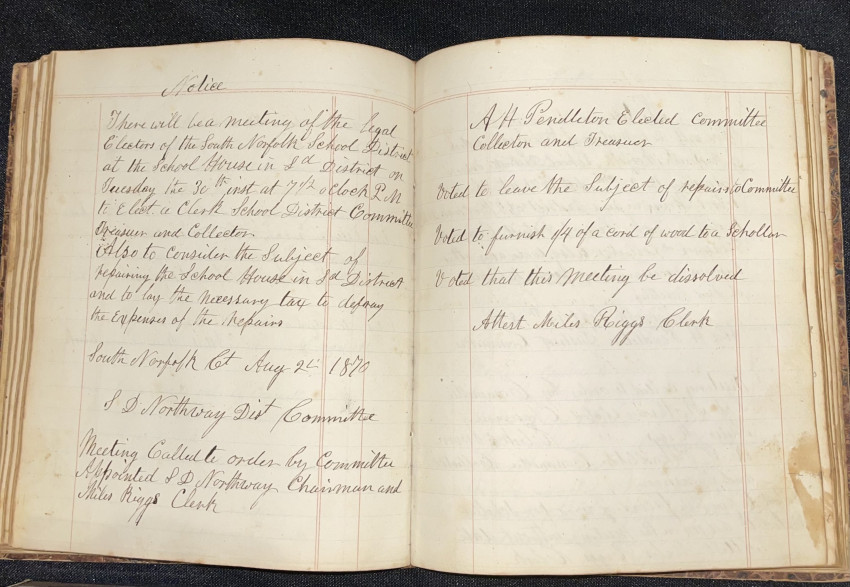 Notice
There will be a meeting of the legal
Electors of the South Norfolk School District
at the School House in Sd District on
Tuesday the 30th inst at 7 1/2 oClock P.M
to Elect a Clerk School District Committee
Treasurer and Collector
Also to consider the Subject of
repairing the School House in Sd District
and to lay the necessary tax to defray
the Expenses of the repairs
South Norfolk Ct Aug 1870
S D Northway Dist Committee
Meeting Called to order by Committee
Appointed S D Northway Chairman and
Miles Riggs Clerk
A H Pendleton Elected Committee
Collector and Treasurer
Voted to leave the Subject of repairs to Committee
Voted to furnish 1/4 of a cord of wood to a Schollar
Voted that this Meeting be dissolved
Attest Miles Riggs Clerk